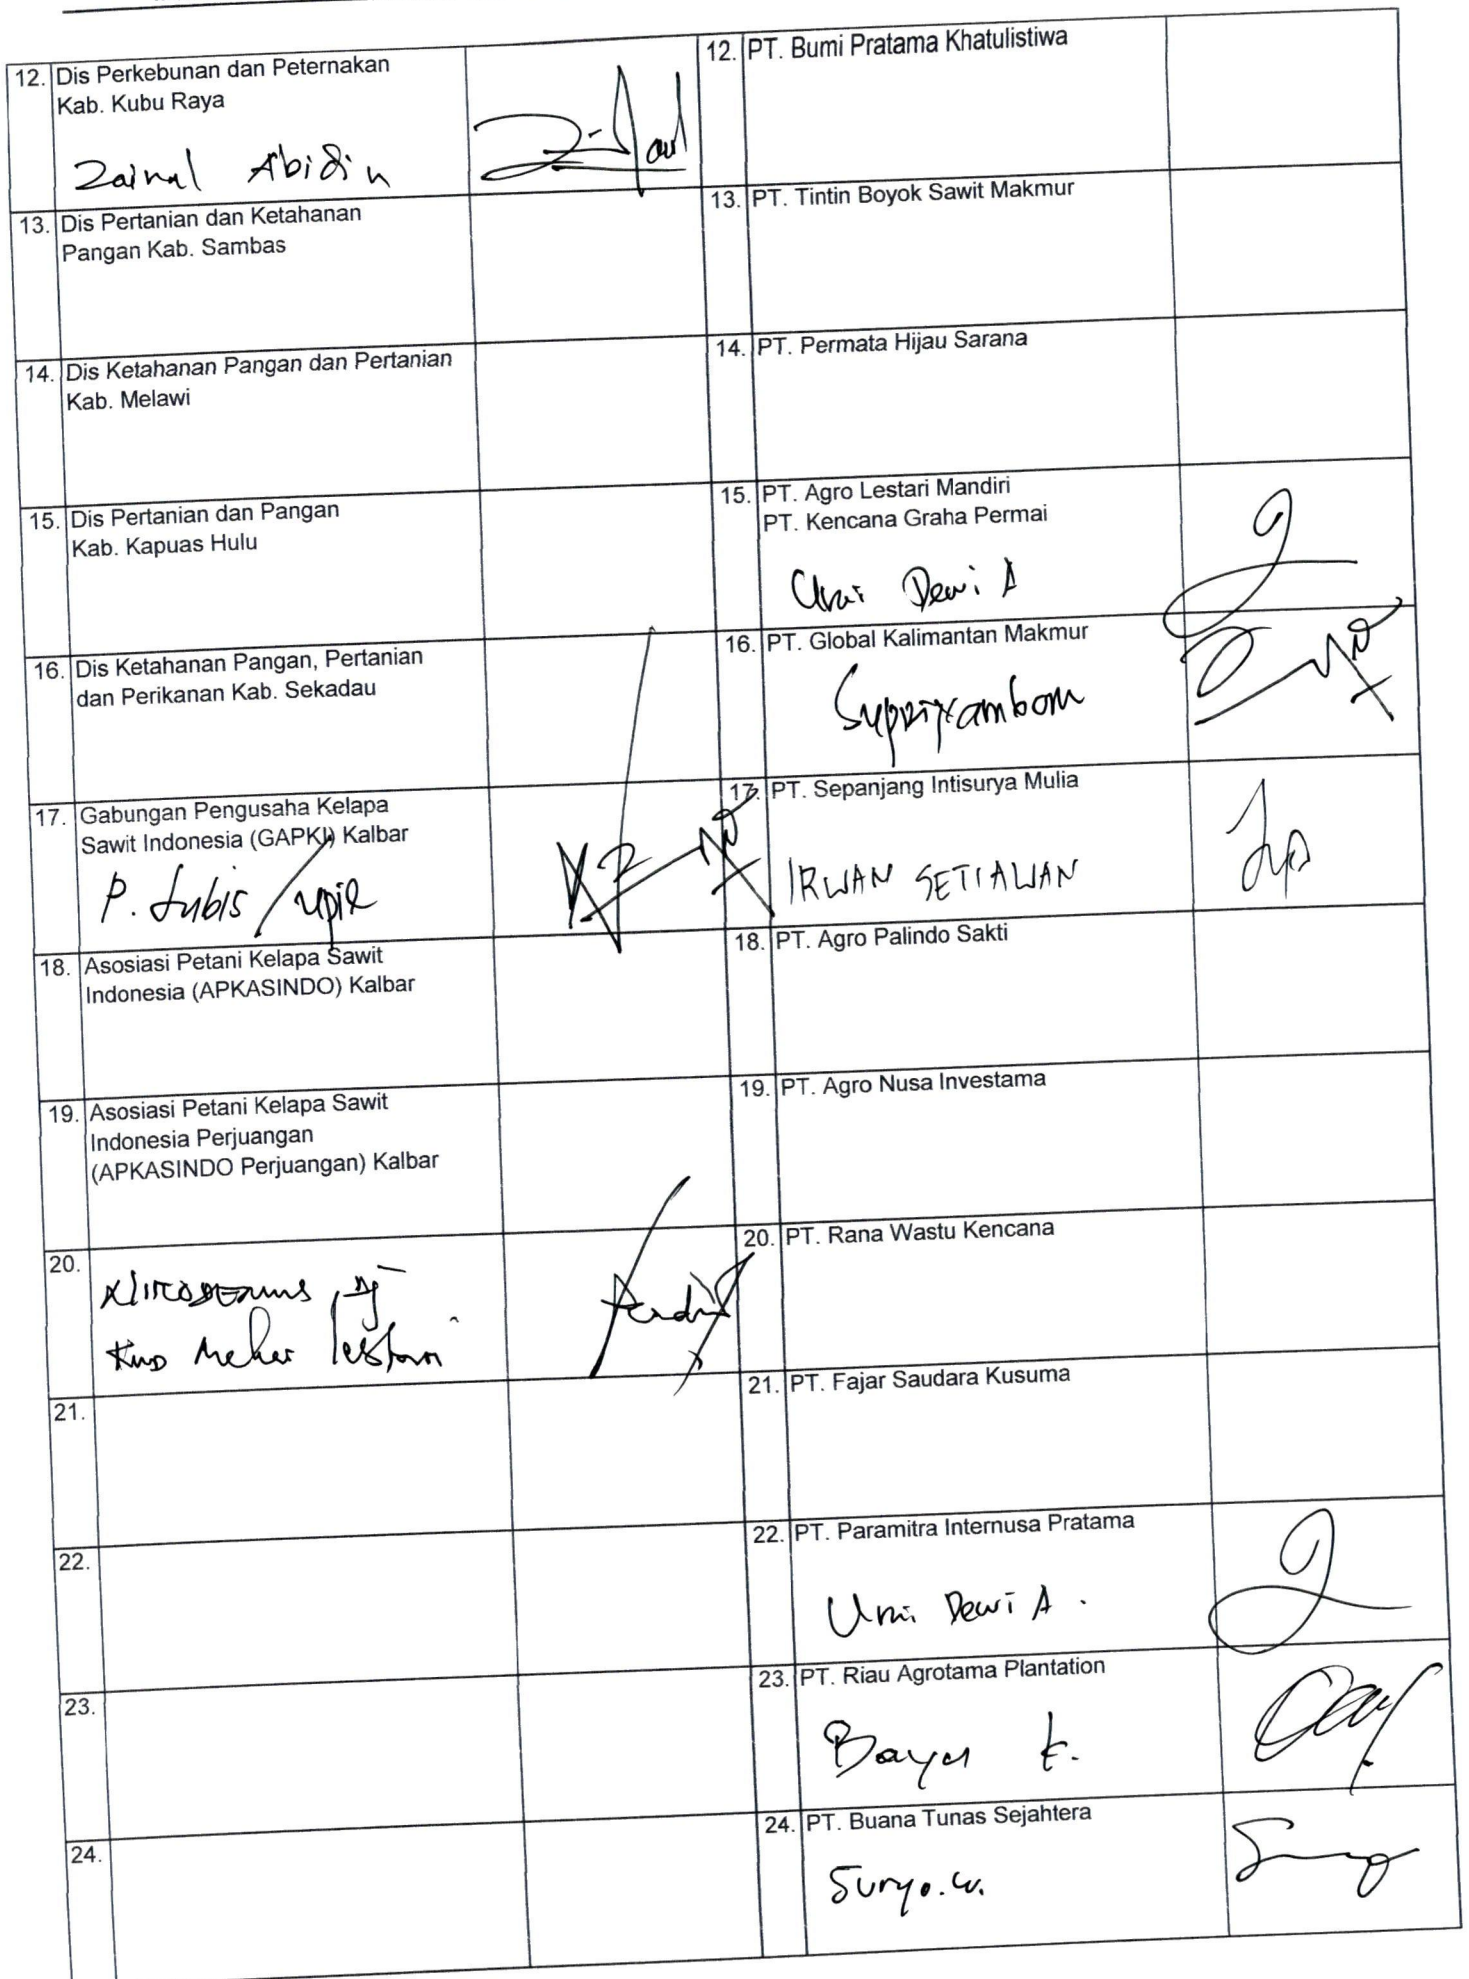 12. Dis Perkebunan dan Peternakan
Kab. Kubu Raya
Zainal Abidin
13. Dis Pertanian dan Ketahanan
Pangan Kab. Sambas
14. Dis Ketahanan Pangan dan Pertanian
Kab. Melawi
15. Dis Pertanian dan Pangan
Kab. Kapuas Hulu
16. Dis Ketahanan Pangan, Pertanian
dan Perikanan Kab. Sekadau
17. Gabungan Pengusaha Kelapa
Sawit Indonesia (GAPKI) Kalbar
P. Lubis /
18. Asosiasi Petani Kelapa Sawit
Indonesia (APKASINDO) Kalbar
19. Asosiasi Petani Kelapa Sawit
Indonesia Perjuangan
(APKASINDO Perjuangan) Kalbar
20.
lestari
21.
22.
23.
24.
12. PT. Bumi Pratama Khatulistiwa
13. PT. Tintin Boyok Sawit Makmur
14. PT. Permata Hijau Sarana
15. PT. Agro Lestari Mandiri
PT. Kencana Graha Permai
Dewi A
16. PT. Global Kalimantan Makmur
17. PT. Sepanjang Intisurya Mulia
IRWAN SETIAWAN
18. PT. Agro Palindo Sakti
19. PT. Agro Nusa Investama
20. PT. Rana Wastu Kencana
21. PT. Fajar Saudara Kusuma
22. PT. Paramitra Internusa Pratama
Dewi A.
23. PT. Riau Agrotama Plantation
Bayu
24. PT. Buana Tunas Sejahtera
Suryo.w.